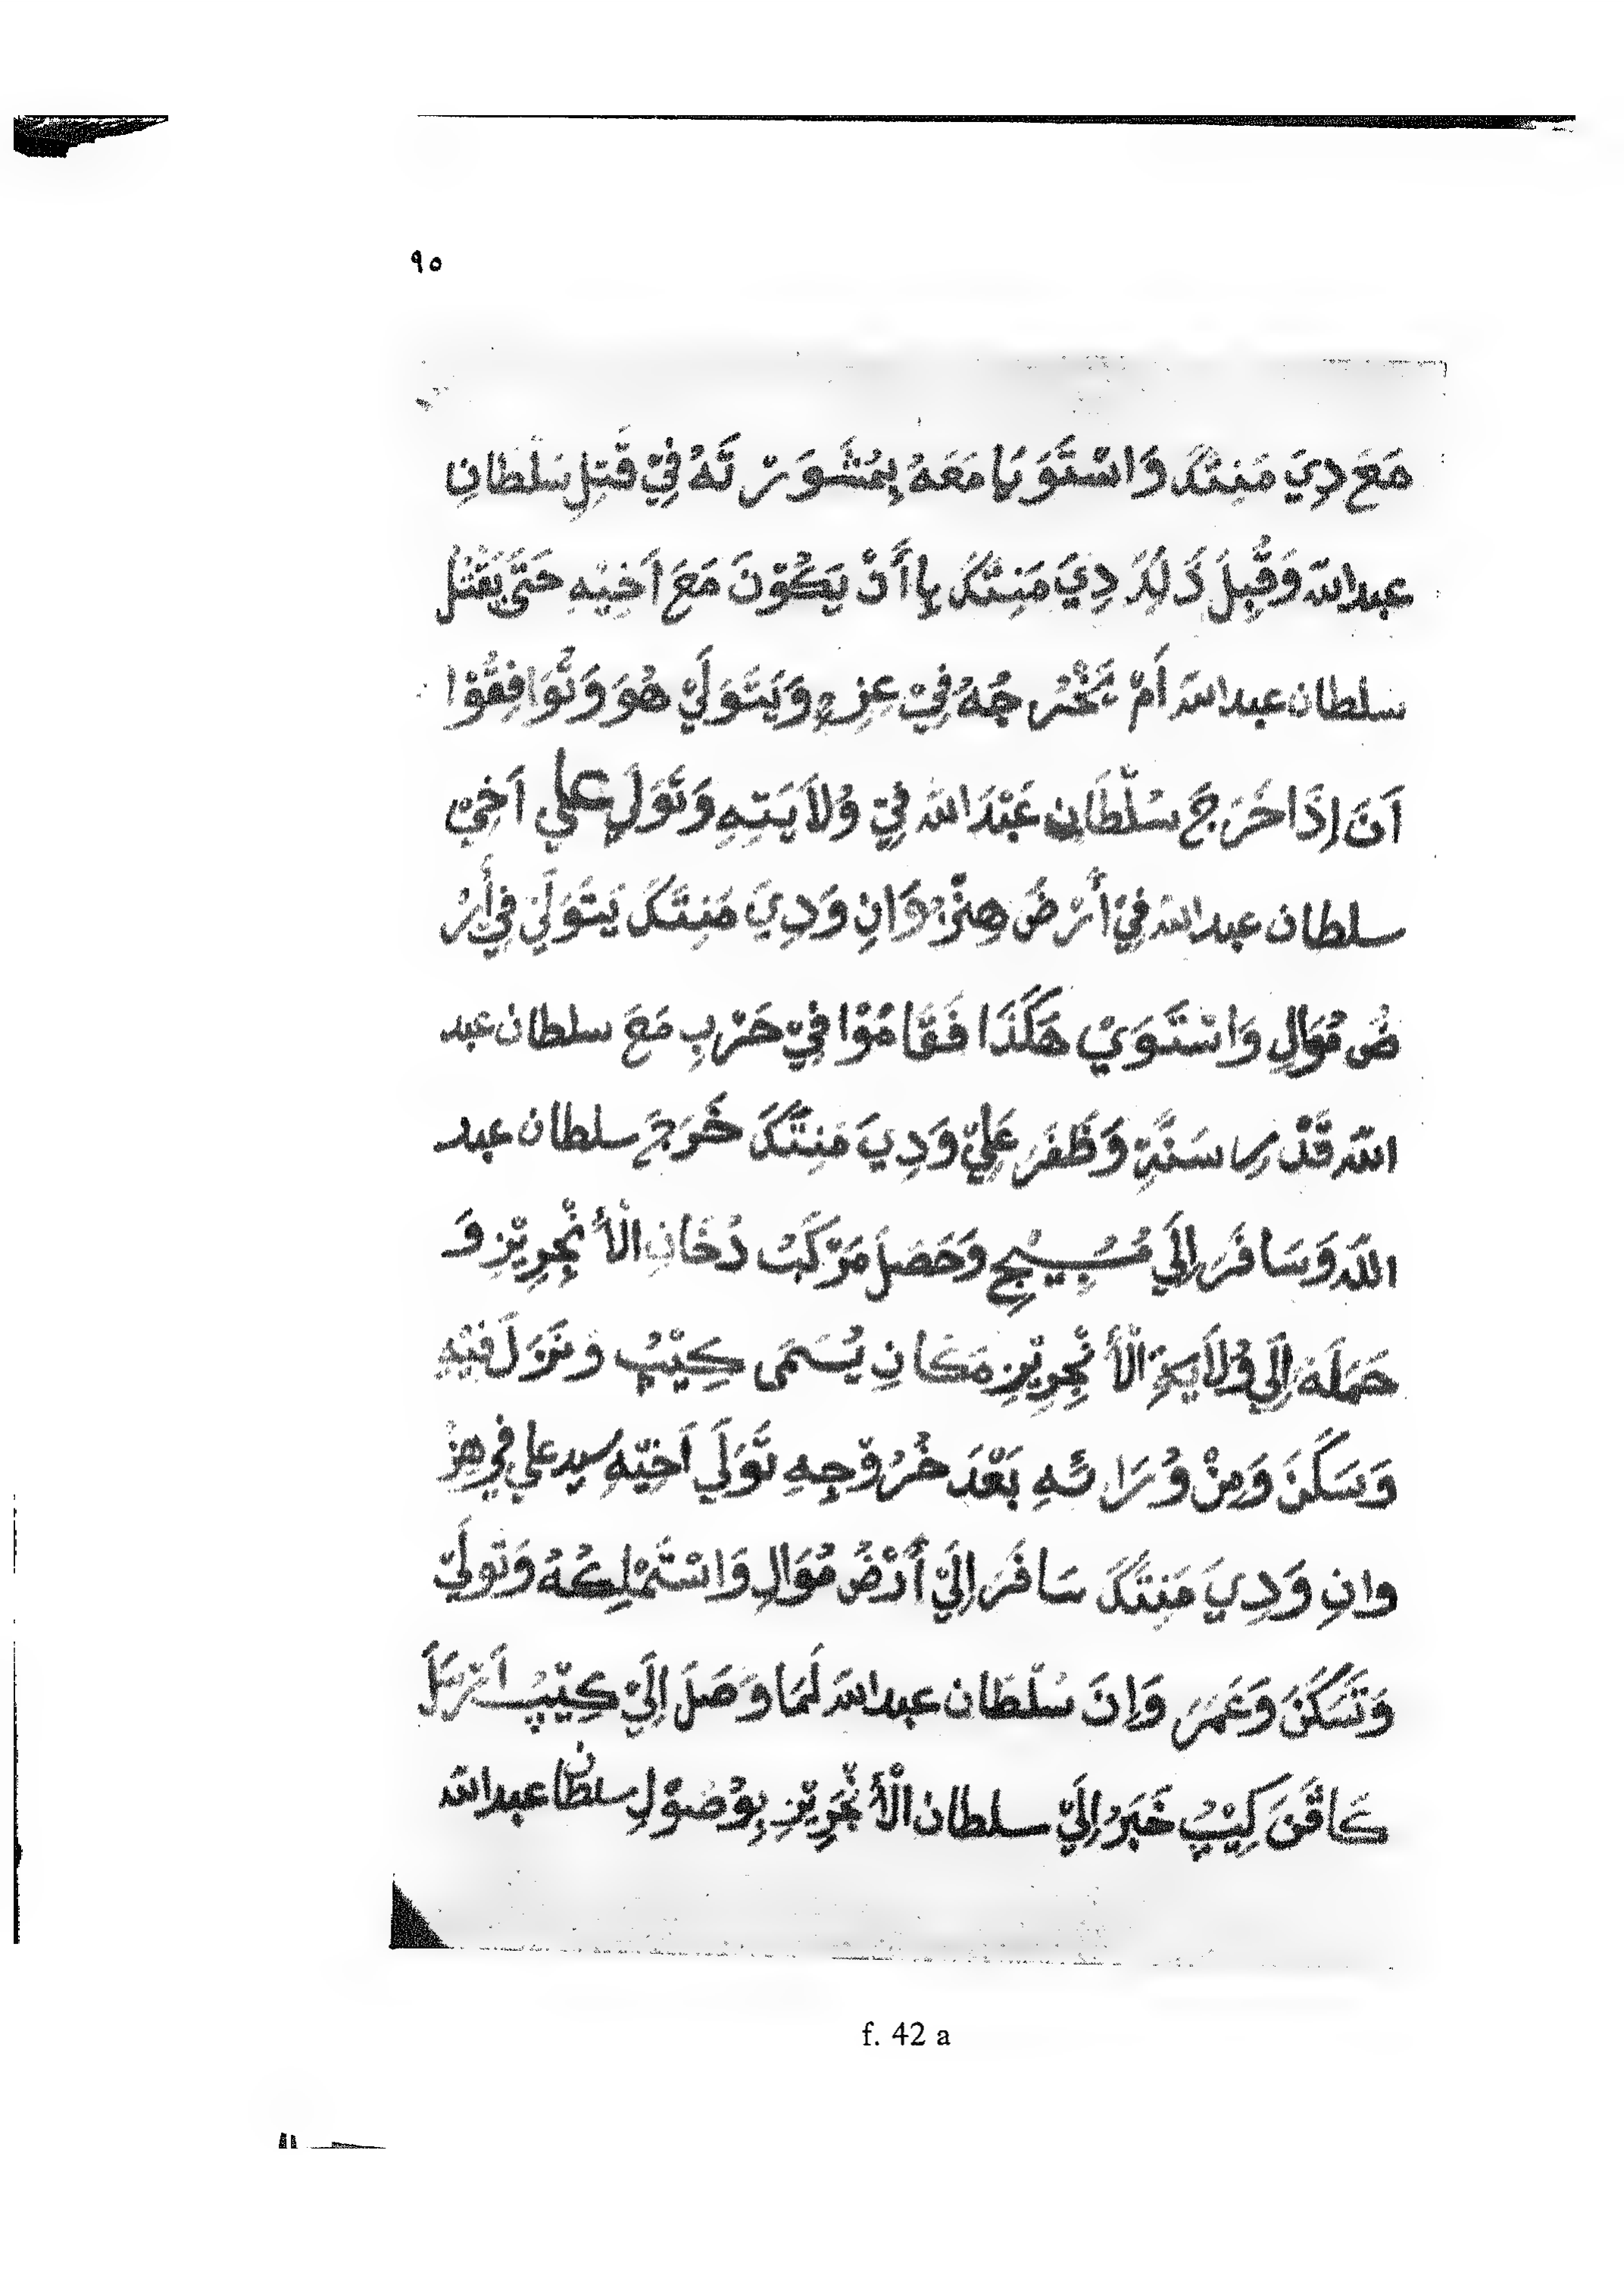 ٩٥
مَعَ دِيَ مَنِتْكَ وَاسْتَوَ يَا مَعَهُ بِمُشَوَرَتَهُ فِيْ قَتِلِ سَلْطَانِ
عبدالله وَقَبِلَ ذَلِكَ دِيَ مَنِتْكَ بِاأَنْ يَكُوْنَ مَعَ اَخِيْهِ حَتَّى يَقْتُلُ
سلطان عبدالله اَمْ يَخْرُجُهُ فِيْ عِزِهِ وَيَتَوَلَيْ هُوَ وَتُوَافِقُوْا
اَنَ اِذَا خَرَجَ سُلْطَانِ عَبْدَاللهِ فِيْ وُلاَيَتِهِ وَتَوَلِ علي اَخِيْ
سلطان عبدالله فِيْ أَرْضَ هِنْزُوَانِ وَدِيَ مَنِتْكَ يَتَوَلَيْ فِي أَرْ
ضُ مُوَالِ وَاسْتَوَيْ هَكَذَا فَقَامُوْا فِيْ حَرْبِ مَعَ سلطان عبد
الله قَدْرِ سَنَةِ وَظَفَرَ عَلِيْ وَدِيَ مَنِتْكَ خَرَجَ سلطان عبد
الله وَسَافَرَ اِلَيْ مُسُبِيْجِ وَحَصَلَ مَرْكَبُ دُخَانِ الْأَنْجِرِيْزِ وَ
حَمَلَهُ اِلَيْ وُلاَيَةِ الْأَنْجِرِيْزِ مَكَانِ يُسَمَى كِيْبُ وَنَزَلَ فِيْهِ
وَسَكَنَ وَمِنْ وُرَائِهِ بَعْدَ خُرُوْجِهِ تَوَلَيْ اَخِيْهِ سيد علي في هنز
وانِ وَدِيَ مَنِتْكَ سَافَرَ اِلَيْ أَرْضُ مُوَالِ وَاسْتَمْلِكُهُ وَتَوَلَيْ
وَتَسَكَنَ وَعَمَرَ وَاِنَ سُلْطَان عبدالله لَمَا وَصَلَ اِلَيْ كِيْبُ اَرْسَلَ
كَافَنَ كِيْبُ خَبَرُ اِلَيْ سلطان الْأَنْجَرِيْزِ بِوُصُوْلِ سلطان عبدالله
f. 42 a